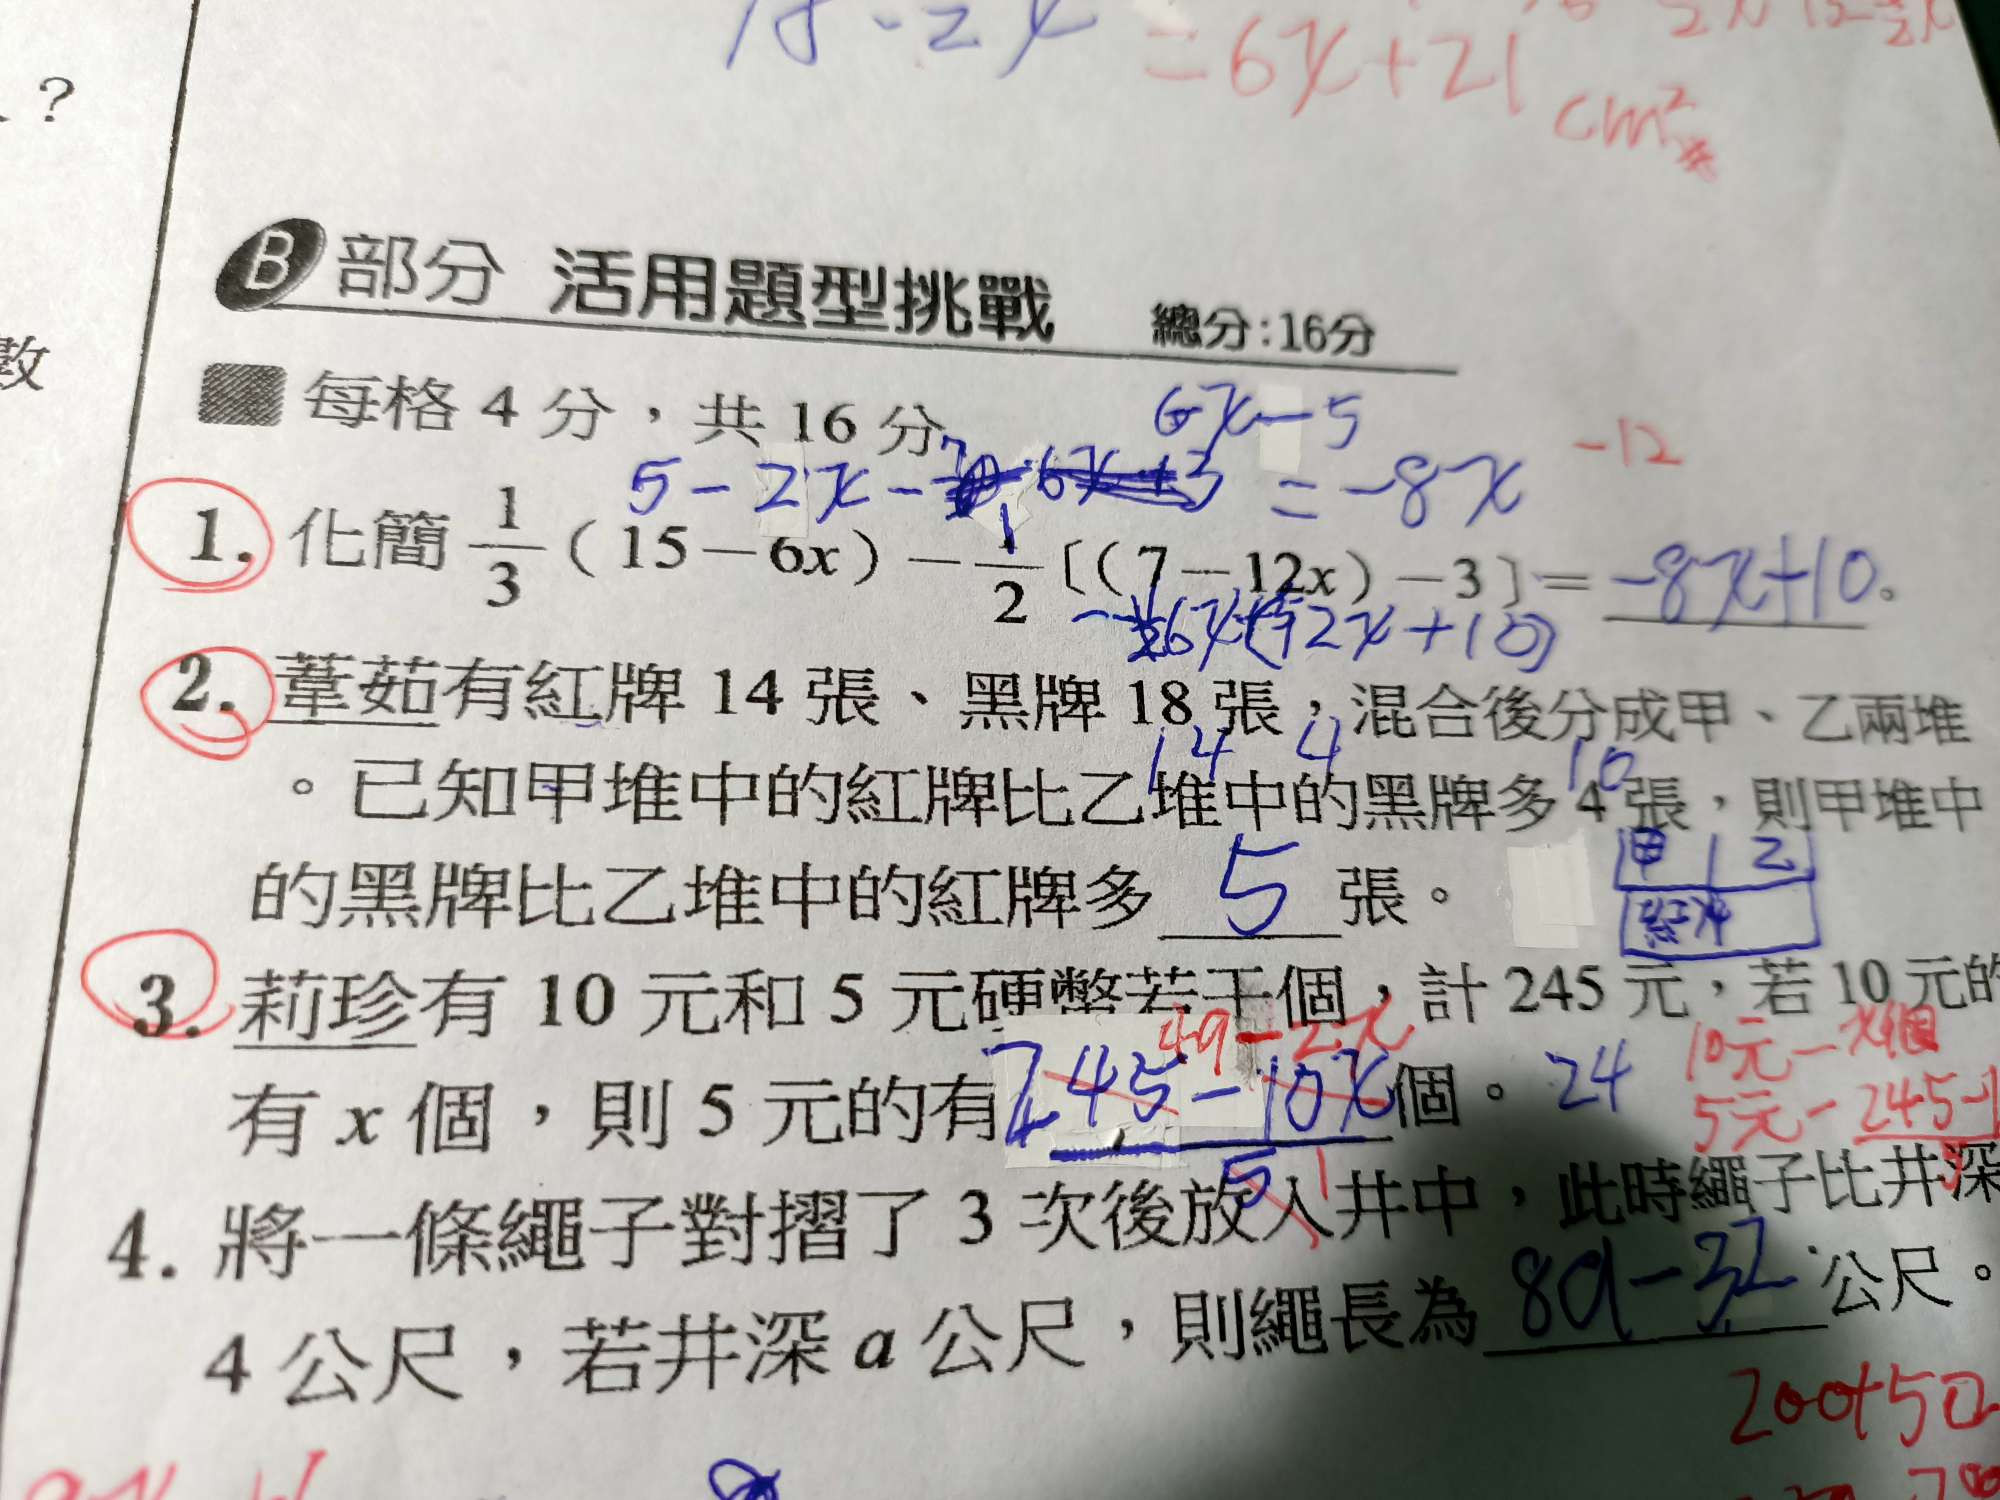 18-2x
=6x+21 cm²
？
B 部分 活用題型挑戰 總分:16分
數
每格 4 分，共 16 分
6x-5
-12
5-2x- =-8x
1. 化簡 1/3（15－6x）－1/2〔（7－12x）－3〕＝ -8x+10。
2. 葦茹有紅牌 14 張、黑牌 18 張，混合後分成甲、乙兩堆
14 4 10
。已知甲堆中的紅牌比乙堆中的黑牌多 4 張，則甲堆中
甲 乙
的黑牌比乙堆中的紅牌多 5 張。
紅
3. 莉珍有 10 元和 5 元硬幣若干個，計 245 元，若 10 元的
49-2x
10元-x個
有 x 個，則 5 元的有 245-10x 個。 24
5元-245-1
5
4. 將一條繩子對摺了 3 次後放入井中，此時繩子比井深
4 公尺，若井深 a 公尺，則繩長為 8a-32 公尺。
200+50